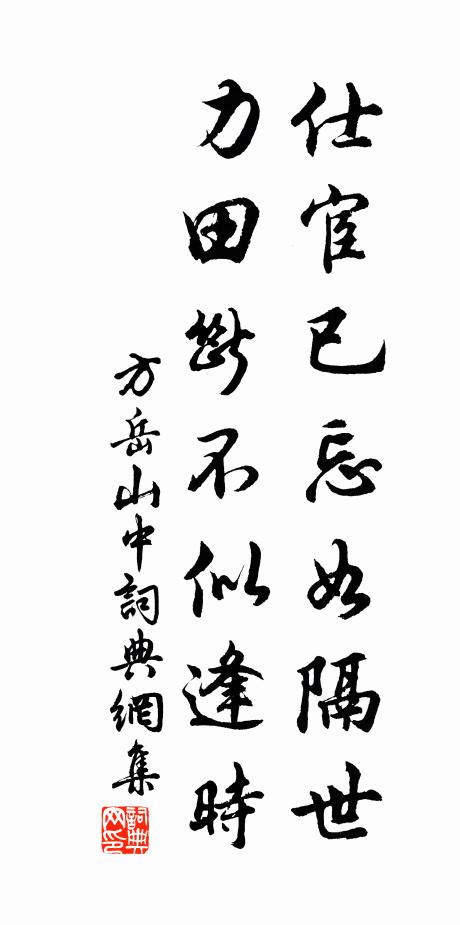 仕宦已忘如隔世
力田斷不似逢時
方岳山中詞典網集
詞典網印